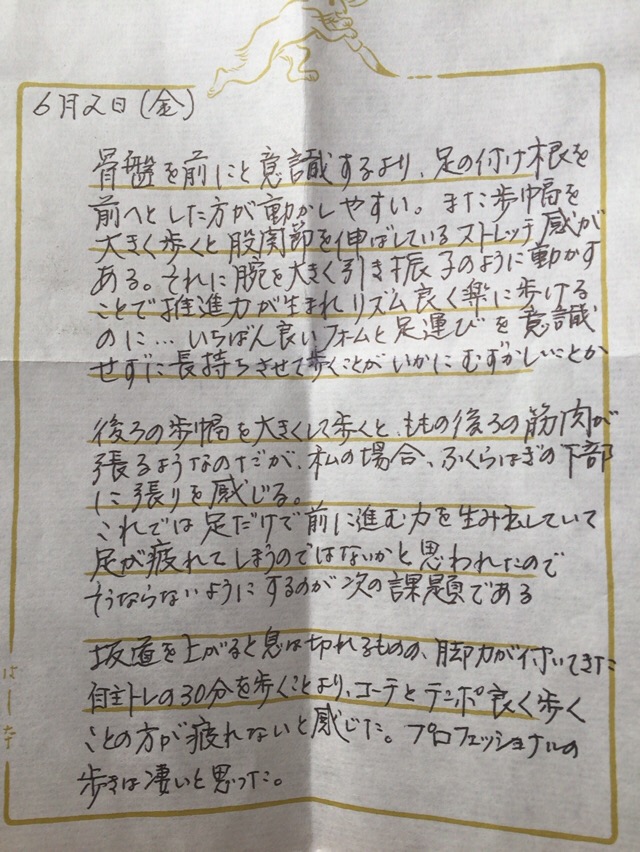 6月2日(金)
骨盤を前にと意識するより、足の付け根を
前へとした方が動かしやすい。また歩幅を
大きく歩くと股関節を伸ばしているストレッチ感が
ある。それに腕を大きく引き振子のように動かす
ことで推進力が生まれリズム良く楽に歩ける
のに…いちばん良いフォームと足運びを意識
せずに長持ちさせて歩くことがいかにむずかしいことか
後ろの歩幅を大きくして歩くと、ももの後ろの筋肉が
張るようなのだが、私の場合、ふくらはぎの下部
に張りを感じる。
これでは足だけで前に進む力を生み出していて
足が疲れてしまうのではないかと思われたので
そうならないようにするのが次の課題である
坂道を上がると息は切れるものの、脚力が付いてきた
自主トレの30分を歩くことより、コーチとテンポ良く歩く
ことの方が疲れないと感じた。プロフェッショナルの
歩きは凄いと思った。